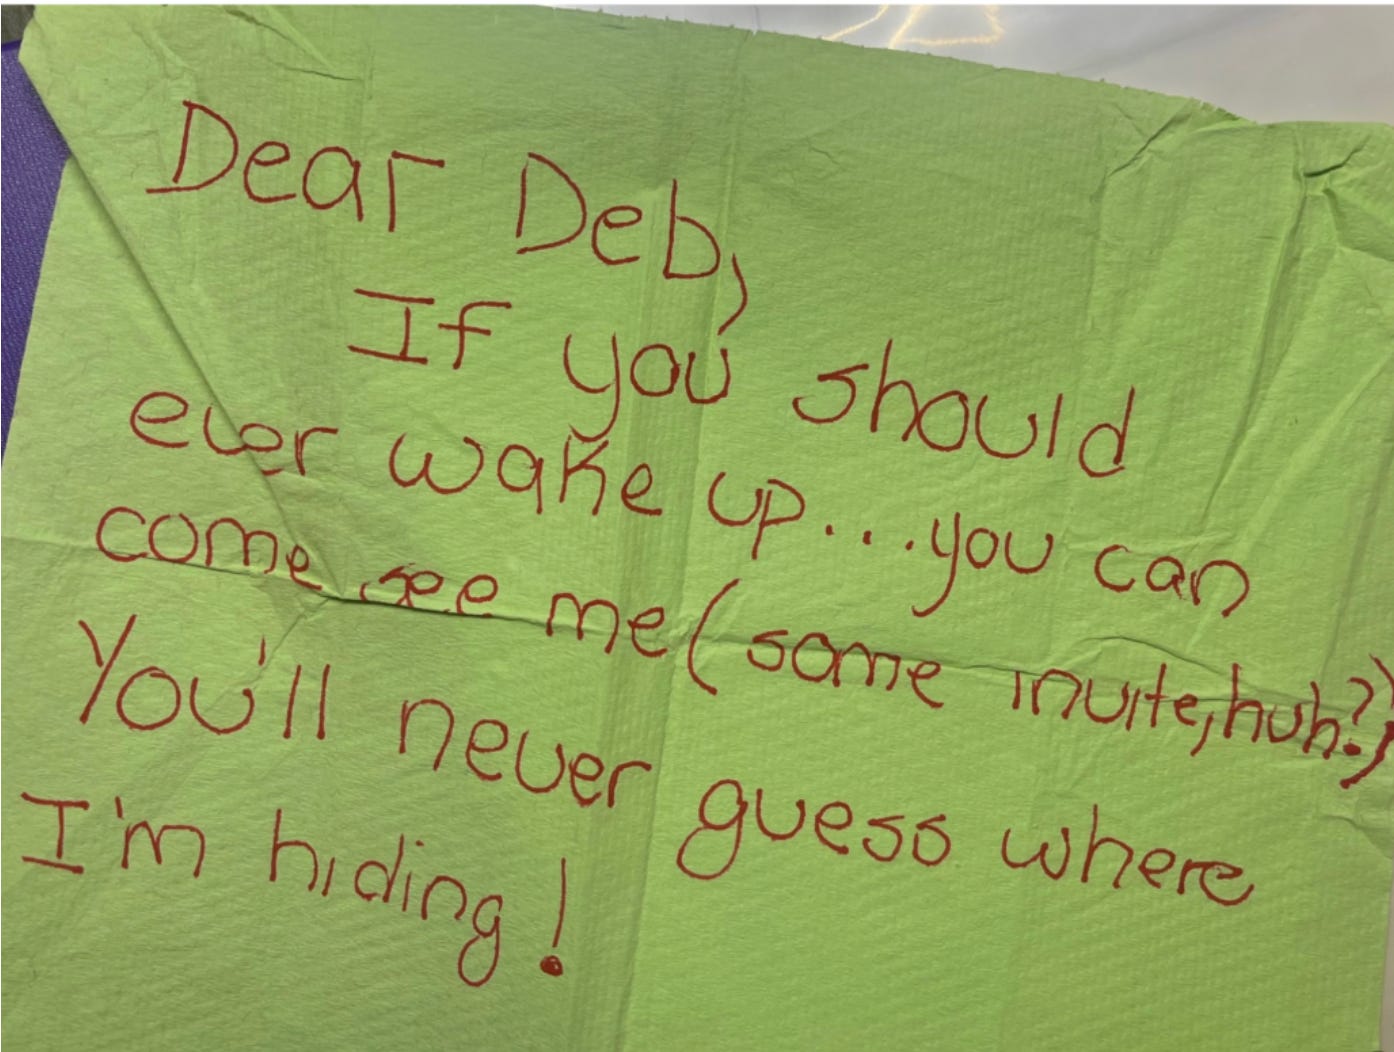 Dear Deb,
If you should
ever wake up...you can
come see me (some invite, huh?)
You'll never guess where
I'm hiding!